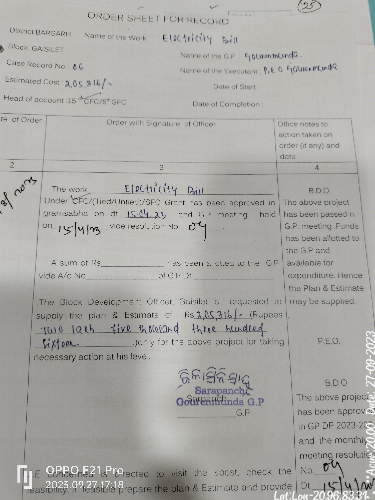 25
ORDER SHEET FOR RECORD
District BARGARH Name of the Work Electricity Bill
Block GAISILET Name of the G.P. Gourenmunda
Case Record No 06 Name of the Executant P.E.O Gourenmunda
Estimated Cost 2,05,316/- Date of Start
Head of account :15th CFC/5th SFC Date of Completion :
te of Order
Order with Signature of Officer
Office notes to
action taken on
order (if any) and
date
2 3 4
The work Electricity Bill
Under CFC/(Tied/Untied)/SFC Grant has been approved in
gramsabha on dt 15.04.23 and G.P. meeting held
on 15/4/23 vide resolution No 04
A sum of Rs has been allotted to the G.P.
vide A/c No of G.P.
The Block Development Officer, Gaisilet is requested to
supply the plan & Estimate of Rs 2,05,316/- (Rupees
Two lakh five thousand three hundred
sixteen )only for the above project for taking
necessary action at his level.
B.D.O
The above project
has been passed in
G.P. meeting. Funds
has been allotted to
the G.P. and
available for
expenditure. Hence
the Plan & Estimate
may be supplied.
P.E.O.
Sarapanch
Gourenmunda G.P
Sarpanch
G.P
B.D.O
The above project
has been approv
in GP DP 2023-2
and the monthly
meeting resolutio
No 04
Dt 15/4/
is directed to visit the spot, check the
feasibility. If feasible prepare the plan & Estimate and provide
OPPO F21 Pro
2023.09.27 17:18